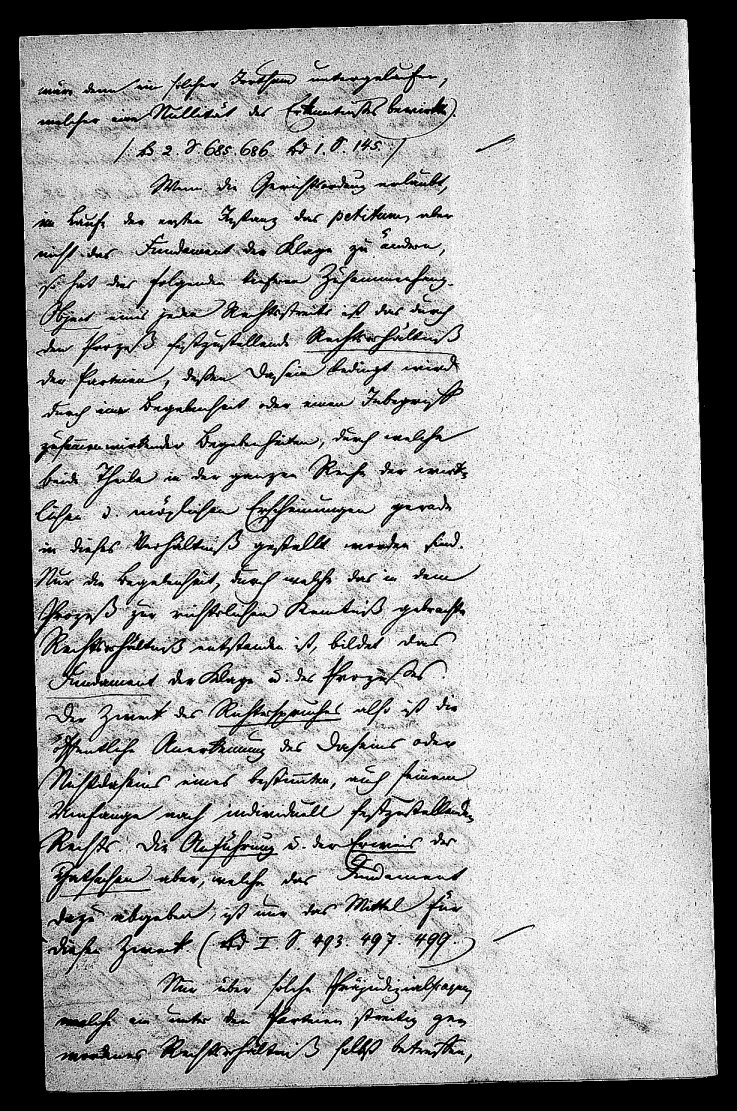 wäre denn ein solcher Irrthum untergelaufen,
welcher eine Nullität des Erkenntnisses bewirkte).
/: Bd 2. S. 685. 686. Bd 1. S. 145. :/
Wenn die Gerichtsordnung erlaubt,
im Laufe der ersten Instanz das petitum, aber
nicht das Fundament der Klage zu ändern,
so hat dies folgenden inneren Zusammenhang.
Object eines jeden Rechtsstreits ist das durch
den Prozeß festzustellende Rechtsverhältniß
der Parteien, dessen Dasein bedingt wird
durch eine Begebenheit oder einen Inbegriff
zusammenwirkender Begebenheiten, durch welche
beide Theile in der ganzen Reihe der wirk-
lichen u. möglichen Erscheinungen gerade
in dieses Verhältniß gestellt worden sind.
Nur die Begebenheit, durch welche das in dem
Prozeß zur richterlichen Kenntniß gebrachte
Rechtsverhältniß entstanden ist, bildet das
Fundament der Klage u. des Prozesses.
Der Zweck des Rechtsspruches also ist die
öffentliche Anerkennung des Daseins oder
Nichtdaseins eines bestimmten, auch seinem
Umfange nach individuell festzustellenden
Rechts. Die Anführung u. der Erweis der
Thatsachen aber, welche das Fundament
dazu abgeben, ist nur das Mittel für
diesen Zweck (Bd I. S. 493. 497. 499.)
Nur über solche Präjudizialfragen,
welche ein unter den Parteien streitig ge-
wordenes Rechtsverhältniß selbst betreffen,